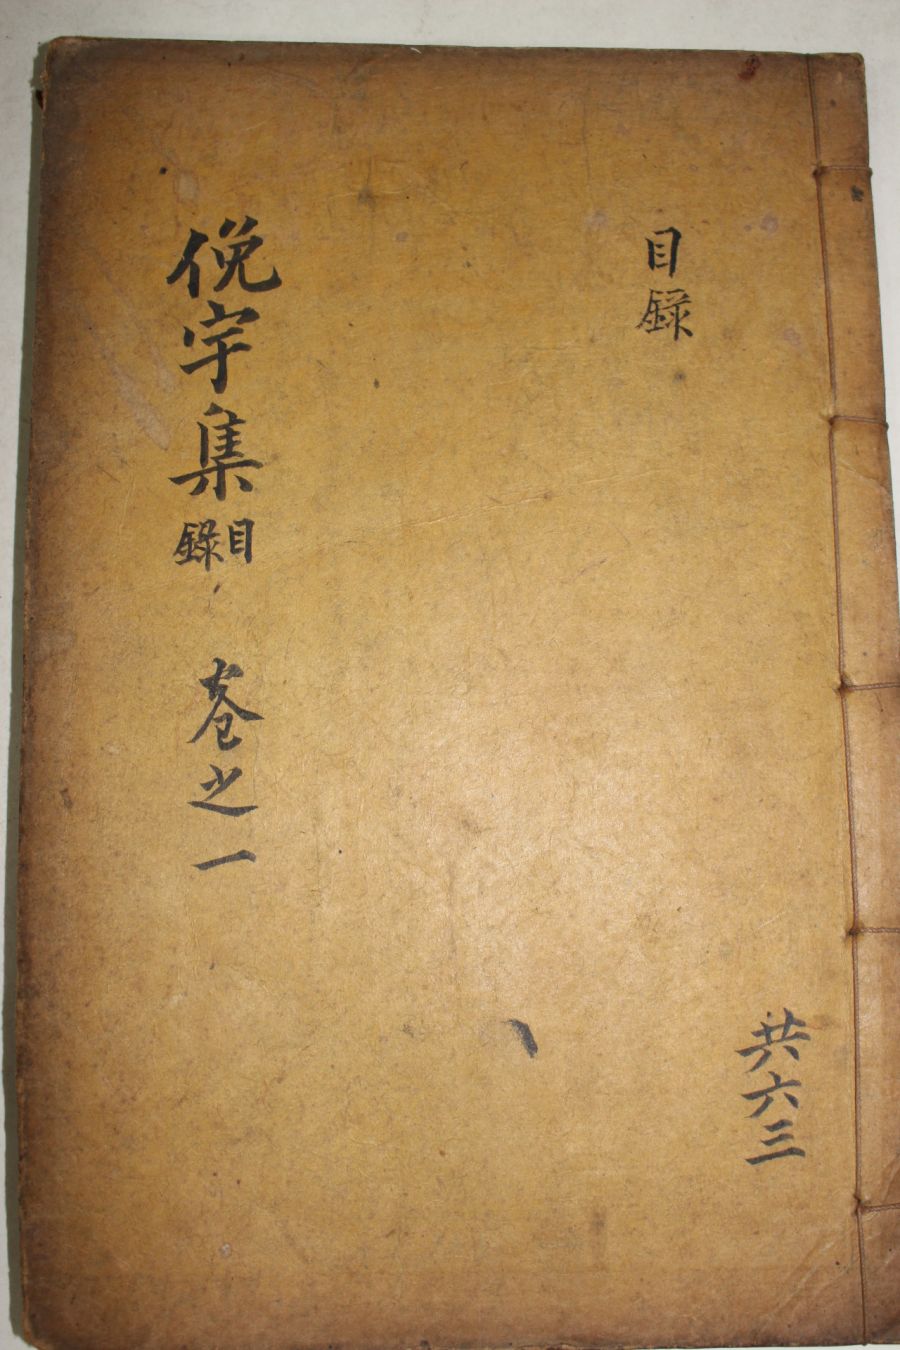 目録
俛宇集 目録 卷之一
共六三